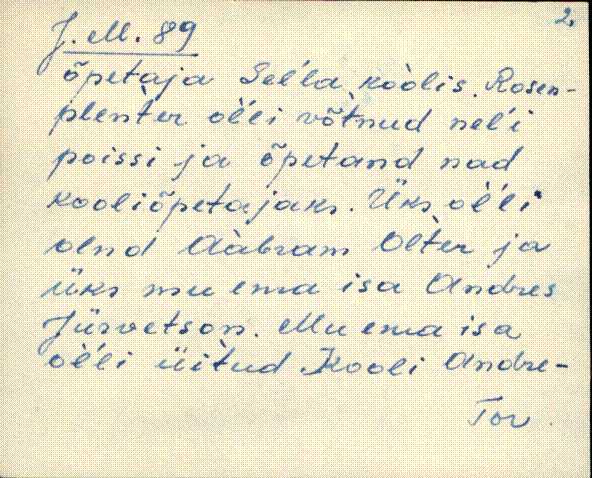 2.
J. M. 89
õpetaja Sel'la koòlis. Rosen-
plenter ol'li võtnud nel'i
poissi ja õpetand nad
kooliõpetajaks. Üks ol'li
olnd Aabram Olter ja
üks mu ema isa Andres
Jürvetson. Mu ema isa
ol'li üitud Kooli Andre-
Tor